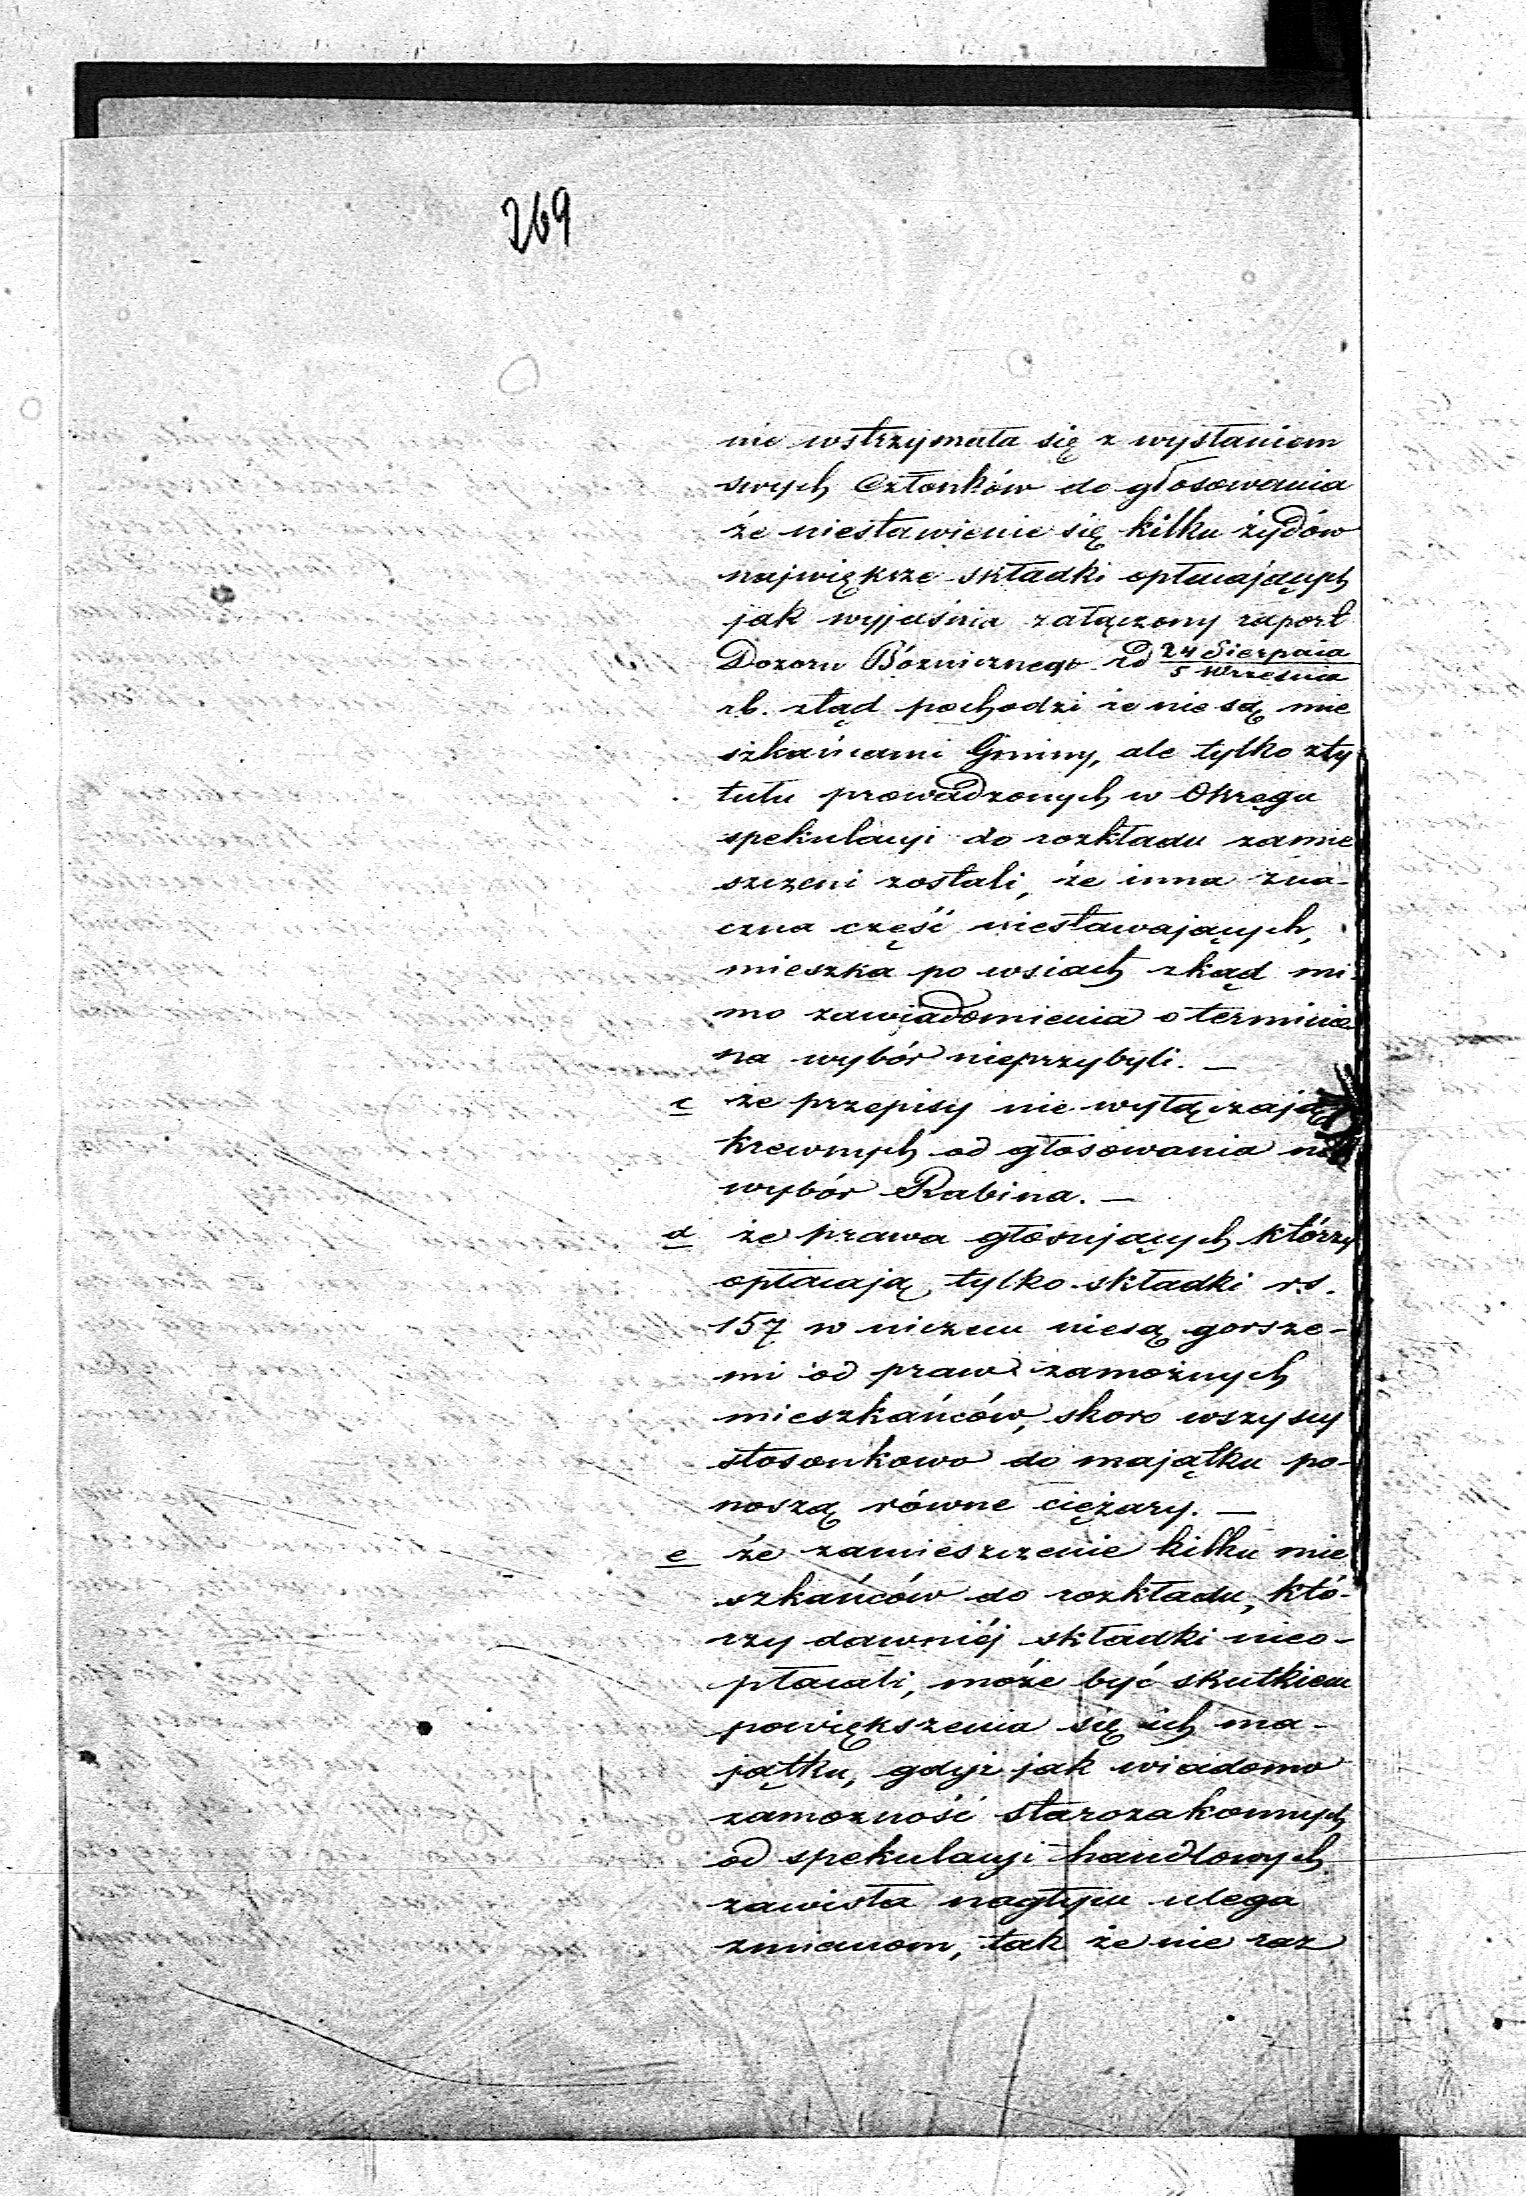 269
nie wstrzymała się z wysłaniem
swych Członków do głosowania
że niestawienie się kilku żydów
największe składki opłacających
jak wyjaśnia załączony raport
Dozoru Bóżniczego d 24 Sierpnia / 5 Września
rb. ztąd pochodzi że nie są mie
szkańcami Gminy, ale tylko zty
tułu prowadzonych w Okręgu
spekulacyi do rozkładu zamie
szczeni zostali, że inna zna-
czna część niestawających,
mieszka po wsiach zkąd mi-
mo zawiadomienia o terminie
na wybór nieprzybyli. —
c że przepisy nie wyłączają
krewnych od głosowania na
wybór Rabina. —
d że prawa głosujących którzy
opłacają tylko składki rs.
157 w niczem niesą gorsze-
mi od praw zamożnych
mieszkańców, skoro wszyscy
stosunkowo do majątku po-
noszą równe ciężary. —
e że zamieszczenie kilku mie
szkańców do rozkładu, któ-
rzy dawniéj składki nieo-
płacali, może być skutkiem
powiększenia się ich ma-
jątku, gdyż jak wiadomo
zamożność starozakonnych
od spekulacyi handlowych
zawisła nagłym ulega
zmianom, tak że nie raz